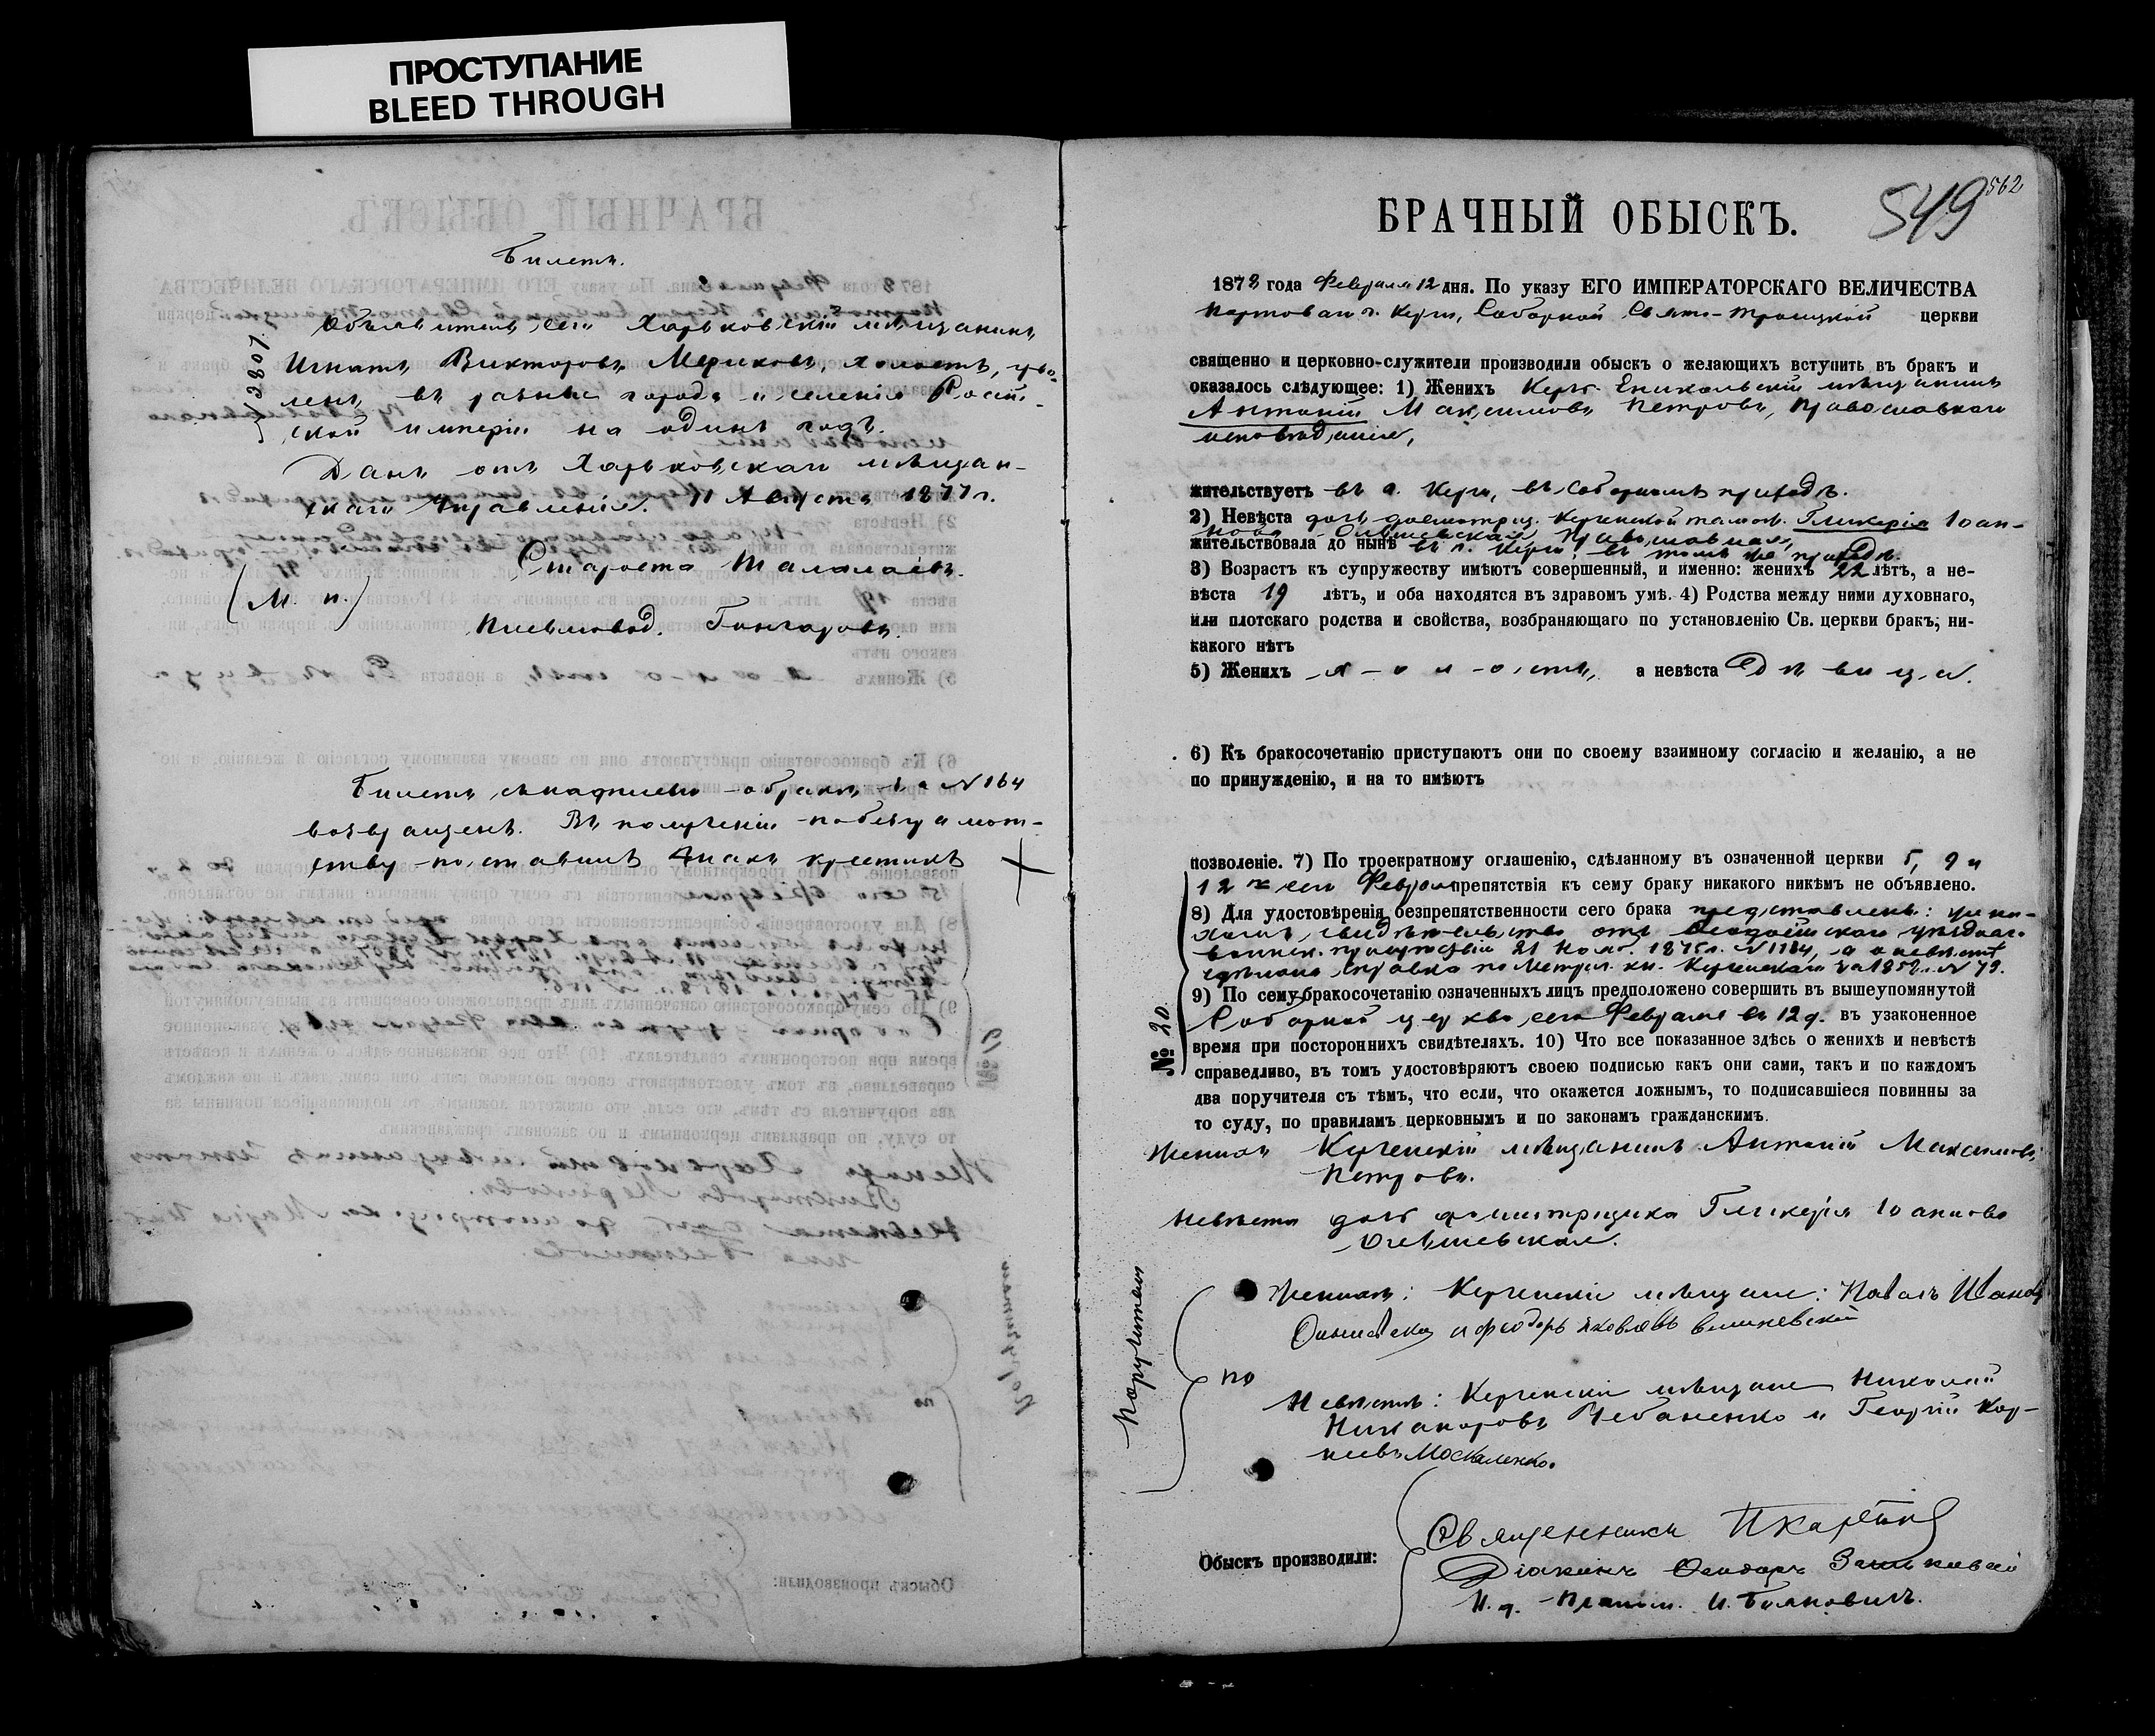 ПРОСТУПАНИЕ
BLEED THROUGH
Билетъ.
№ 3807.
Объявитель сего Харьковскій мѣщанинъ
Игнатъ Викторовъ Мериковъ, холостъ, уво-
ленъ въ разные города и селенія Россій-
ской имперіи на одинъ годъ.
Данъ отъ Харьковскаго мѣщан-
скаго Управленія. 11 Августа 1877 г.
Староста Талалаевъ.
(М. п.)
Письмовод. Гончаровъ.
Билетъ съ надписью о бракѣ за № 164
возвращенъ. Въ полученіи по безграмот-
ству поставилъ знакъ крестикъ +
549 562
БРАЧНЫЙ ОБЫСКЪ.
1878 года Февраля 12 дня. По указу ЕГО ИМПЕРАТОРСКАГО ВЕЛИЧЕСТВА
Портоваго г. Керчи, Соборной Свято-Троицкой церкви
священно и церковно-служители производили обыскъ о желающихъ вступить въ бракъ и
оказалось слѣдующее: 1) Женихъ Керчь-Еникольскій мѣщанинъ
Антоній Максимовъ Петровъ, православнаго
исповѣданія,
жительствуетъ въ г. Керчи, въ Соборномъ приходѣ.
2) Невѣста дочь досмотрщ. Керченской тамож. Гликерія Іоан-
нова православная,
жительствовала до нынѣ въ г. Керчи, въ томъ же приходѣ.
3) Возрастъ къ супружеству имѣютъ совершенный, и именно: женихъ 22 лѣтъ, а не-
вѣста 19 лѣтъ, и оба находятся въ здравомъ умѣ. 4) Родства между ними духовнаго,
или плотскаго родства и свойства, возбраняющаго по установленію Св. церкви бракъ, ни-
какого нѣтъ
5) Женихъ х-о-л-о-стъ, а невѣста Дѣвица.
6) Къ бракосочетанію приступаютъ они по своему взаимному согласію и желанію, а не
по принужденію, и на то имѣютъ
позволеніе. 7) По троекратному оглашенію, сдѣланному въ означенной церкви 5, 9 и
12 х сего Февраля препятствія къ сему браку никакого никѣмъ не объявлено.
8) Для удостовѣренія безпрепятственности сего брака представлены: жени-
хомъ свидѣтельство отъ Ѳеодосійскаго уѣзднаго
воинск. присутствія 21 Нояб. 1875 г. № 1184, а о невѣстѣ
сдѣлана справка по Метрич. кн. Керченскаго за 1858 г. № 79.
9) По сему бракосочетанію означенныхъ лицъ предположено совершить въ вышеупомянутой
Соборной церкви сего Февраля въ 12 д. въ узаконенное
время при постороннихъ свидѣтеляхъ. 10) Что все показанное здѣсь о женихѣ и невѣстѣ
справедливо, въ томъ удостовѣряютъ своею подписью какъ они сами, такъ и по каждомъ
два поручителя съ тѣмъ, что если, что окажется ложнымъ, то подписавшіеся повинны за
то суду, по правиламъ церковнымъ и по законамъ гражданскимъ.
№ 20
Женихъ Керченскій мѣщанинъ Антоній Максимовъ
Петровъ.
Невѣста дочь досмотрщика Гликерія Іоаннова
Поручители
по
Женихѣ: Керченскіе мѣщане: Павалъ Ивановъ
и Феодоръ Яковлевъ Вишневскій
Невѣстѣ: Керченскіе мѣщане Николай
Никаноровъ Чебаненко и Георгій Кор-
ніевъ Москаленко.
Обыскъ производили:
Священникъ
Діаконъ Ѳеодоръ
И. д. Псалом. И.